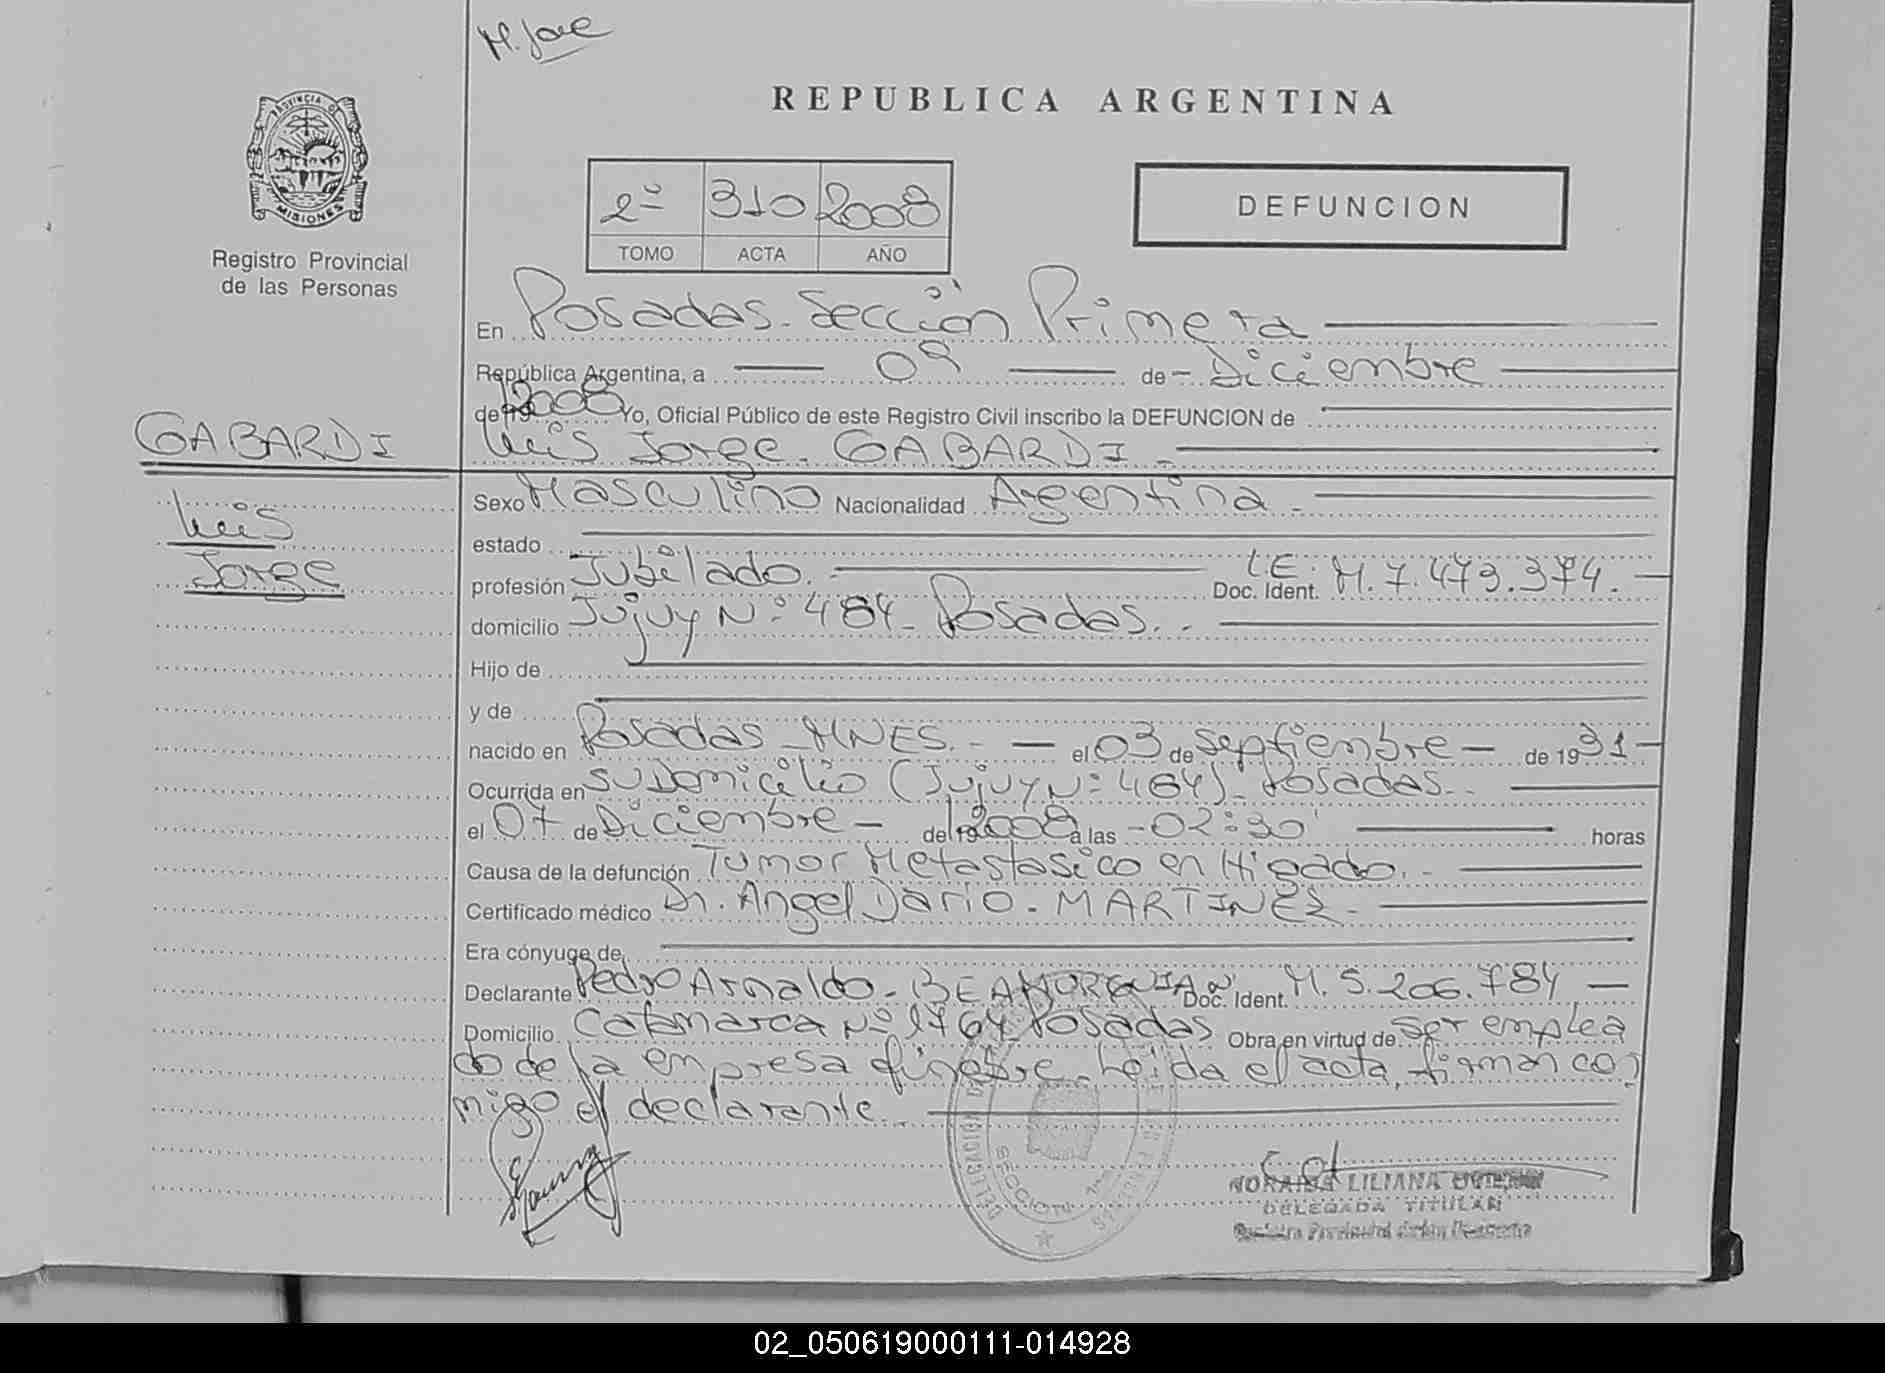 M. José
REPUBLICA ARGENTINA
PROVINCIA DE
MISIONES
Registro Provincial
de las Personas
2º 310 2008
TOMO ACTA AÑO
DEFUNCION
En Posadas. Sección Primera
República Argentina, a 09 de Diciembre
de 2008 Yo, Oficial Público de este Registro Civil inscribo la DEFUNCION de
GABARDI
Luis Jorge. GABARDI
Luis
Jorge
Sexo Masculino Nacionalidad Argentina.
estado
profesión Jubilado. Doc. Ident. L.E: M. 7.473.374.
domicilio Jujuy Nº: 484. Posadas.
Hijo de
y de
nacido en Posadas - MNES. el 03 de Septiembre de 1931
Ocurrida en su Domicilio (Jujuy Nº: 464). Posadas.
el 07 de Diciembre de 2008 a las 02:30 horas
Causa de la defunción Tumor Metastasico en Higado.
Certificado médico Dr. Angel Dario. MARTINEZ.
Era cónyuge de
Declarante Pedro Arnaldo. Doc. Ident. M. 5.206.784
Domicilio Catamarca Nº 1764 Posadas Obra en virtud de ser emplea
do de la empresa fúnebre. Leida el acta, firman con
migo el declarante.
DELEGACION
SECCION 1ra
LILIANA
DELEGADA TITULAR
02_050619000111-014928